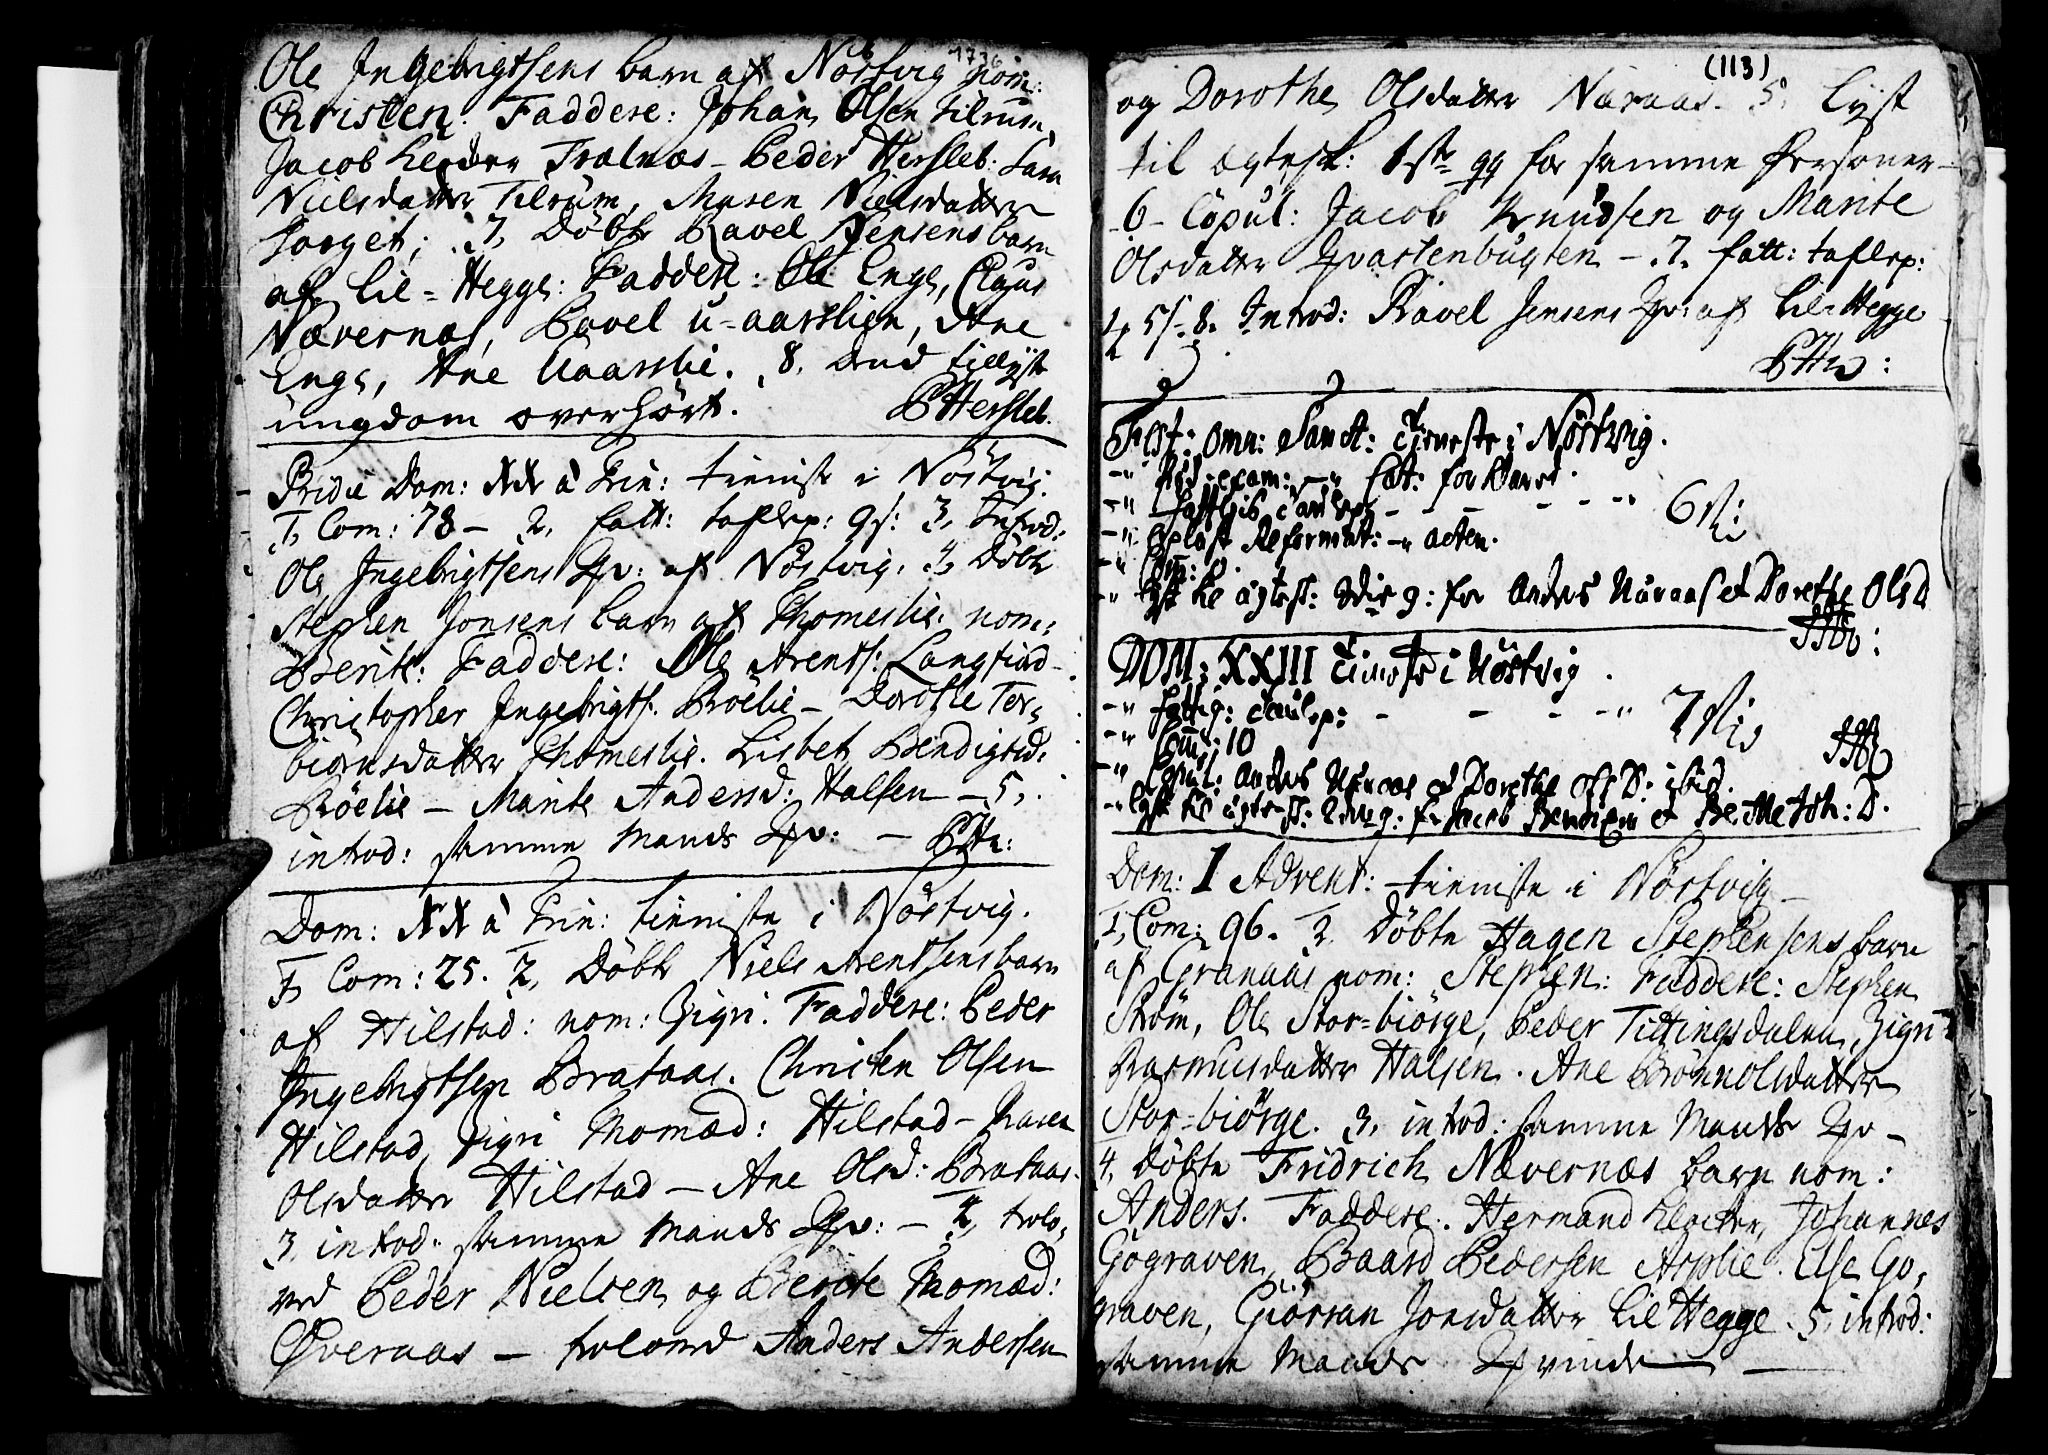 1736
Ole Ingebrigtsens barn af Nöstvig nom:
Christen: Faddere: Johan Olsen Tilrum,
Jacob Trælnæs – Peder Hersleb: Sara
Nielsdatter Tilrum, Maren Nielsdatter
Torget; 7, Döbte Pavel Jensens barn
af Lil-Hegge: Faddere: Ole Enge, Claus
Nævernæs, Pavel u-aarslien, Ane
Enge, Ane Uaarslie. 8. tillyste
ungdom overhört. PHersleb.
Pridie Dom: XX à Trin: tieniste i Nöstvig.
1, Com: 78 – 2, fatt: taflep: 9 s: 3, Introd:
Ole Ingebrigtsens Qv: af Nöstvig. 4, Döbte
Stephen Jonsens barn af Thomeslie. nom:
Berite: Faddere: Ole Arents: Langfind-
Christopher Ingebrigts: Röelie – Dorothe Tor-
biörnsdatter Thomeslie. Lisbet Bendigtsd:
Röelie – Marite Andersd: Halsen – 5,
introd: samme Mands Qv: –
Dom: XX à Trin: tieniste i Nöstvig.
1, Com: 25. 2, Döbte Niels Arentsens barn
af Hilstad: nom: Zigri. Faddere: Peder
Ingebrigtsen Brataas. Christen Olsen
Hilstad, Zigri Thomæd: Hilstad – Maren
Olsdatter Hilstad – Ane Olsd: Brataas.
3, introd: samme Mands Qv: – 4, trolo-
ved Peder Nielsen og Berete Thomæd:
Øveraas – troloved Anders Andersen
(113)
og Dorothe Olsdatter Naraas. 5, Lyst
til ægtesk: 1ste gg for samme Personer –
6 – Copul: Jacob Knudsen og Marite
Olsdatter Qvastenbugten – .7. fatt: taflep:
4 s. 8. Introd: Pavel Jensens Qv: af Lil-Hegge
Fest: Omn: Sanct: Tieneste i Nöstvig.
6
Reformat: acten.
Com: 0.
Lyst til ægtesk: 2dre g: for Anders Naraas et Dorethe Ols D
DOM: XXIII Tieneste i Nöstvig.
Fattig: 7
Com: 10
Copul: Anders Naraas et Dorethe Ols D: ibid.
Lyst til ægtesk: g: for Jacob et Berethe Joh: D.
Dom: 1 Advent: tieniste i Nöstvig –
1, Com: 96. 2, Döbte Hagen Stephensens barn
af Granaas nom: Stephen: Faddere: Stephen
Ström, Ole Stor-biörge, Peder Tittingsdalen, Zigri
Rasmusdatter Halsen. Ane Brönnolsdatter
Stor-biörge. 3, introd: samme Mands Qv –
4, Döbte Fridrich Nævernæs barn nom:
Anders. Faddere: Hermand Johannes
Gögraven, Baard Pedersen Arslie. Else Gö-
graven, Giörran Jonsdatter Lil Hegge. 5, introd:
samme Mands Qvinde –